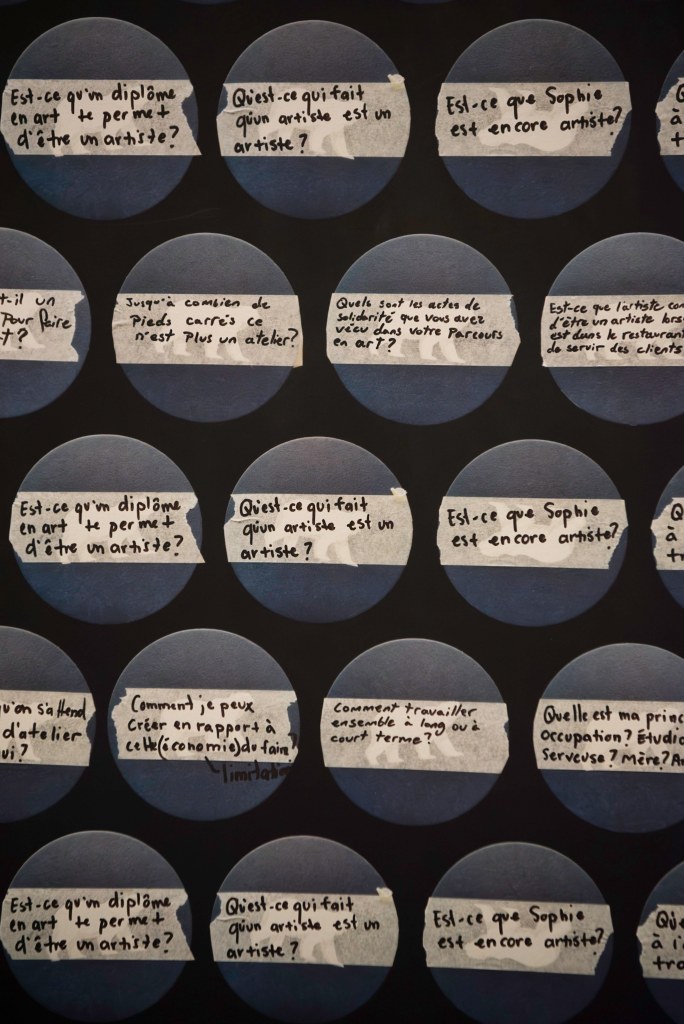 Est-ce qu'un diplôme
en art te permet
d'être un artiste?
Qu'est-ce qui fait
qu'un artiste est un
artiste?
Est-ce que Sophie
est encore artiste?
Q
à
t
t-il un
Pour faire
t?
Jusqu'à combien de
Pieds carrés ce
n'est Plus un atelier?
Quels sont les actes de
solidarité que vous avez
vécu dans votre Parcours
en art?
Est-ce que l'artiste con
d'être un artiste lors
est dans le restauran
de servir des clients
Est-ce qu'un diplôme
en art te permet
d'être un artiste?
Qu'est-ce qui fait
qu'un artiste est un
artiste?
Est-ce que Sophie
est encore artiste?
Q
à
tr
qu'on s'attend
d'atelier
ui?
Comment je peux
Créer en rapport à
cette (économie) du faire?
limitation
Comment travailler
ensemble à long ou à
court terme?
Quelle est ma princ
occupation? Étudia
Serveuse? Mère? Ar
Est-ce qu'un diplôme
en art te permet
d'être un artiste?
Qu'est-ce qui fait
qu'un artiste est un
artiste?
Est-ce que Sophie
est encore artiste?
Qu'e
à l'
tra